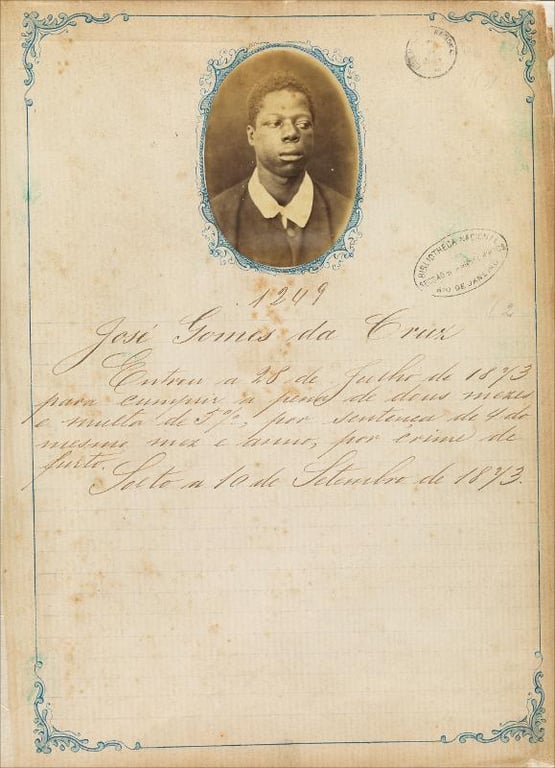 BIBLIOTHECA NACIONAL
RIO DE JANEIRO
1249
José Gomes da Cruz
Entrou a 28 de Julho de 1873
para cumprir a pena de dous mezes
e multa de 5%, por sentença de 4 do
mesmo mez e anno, por crime de
furto.
Solto a 10 de Setembro de 1873.